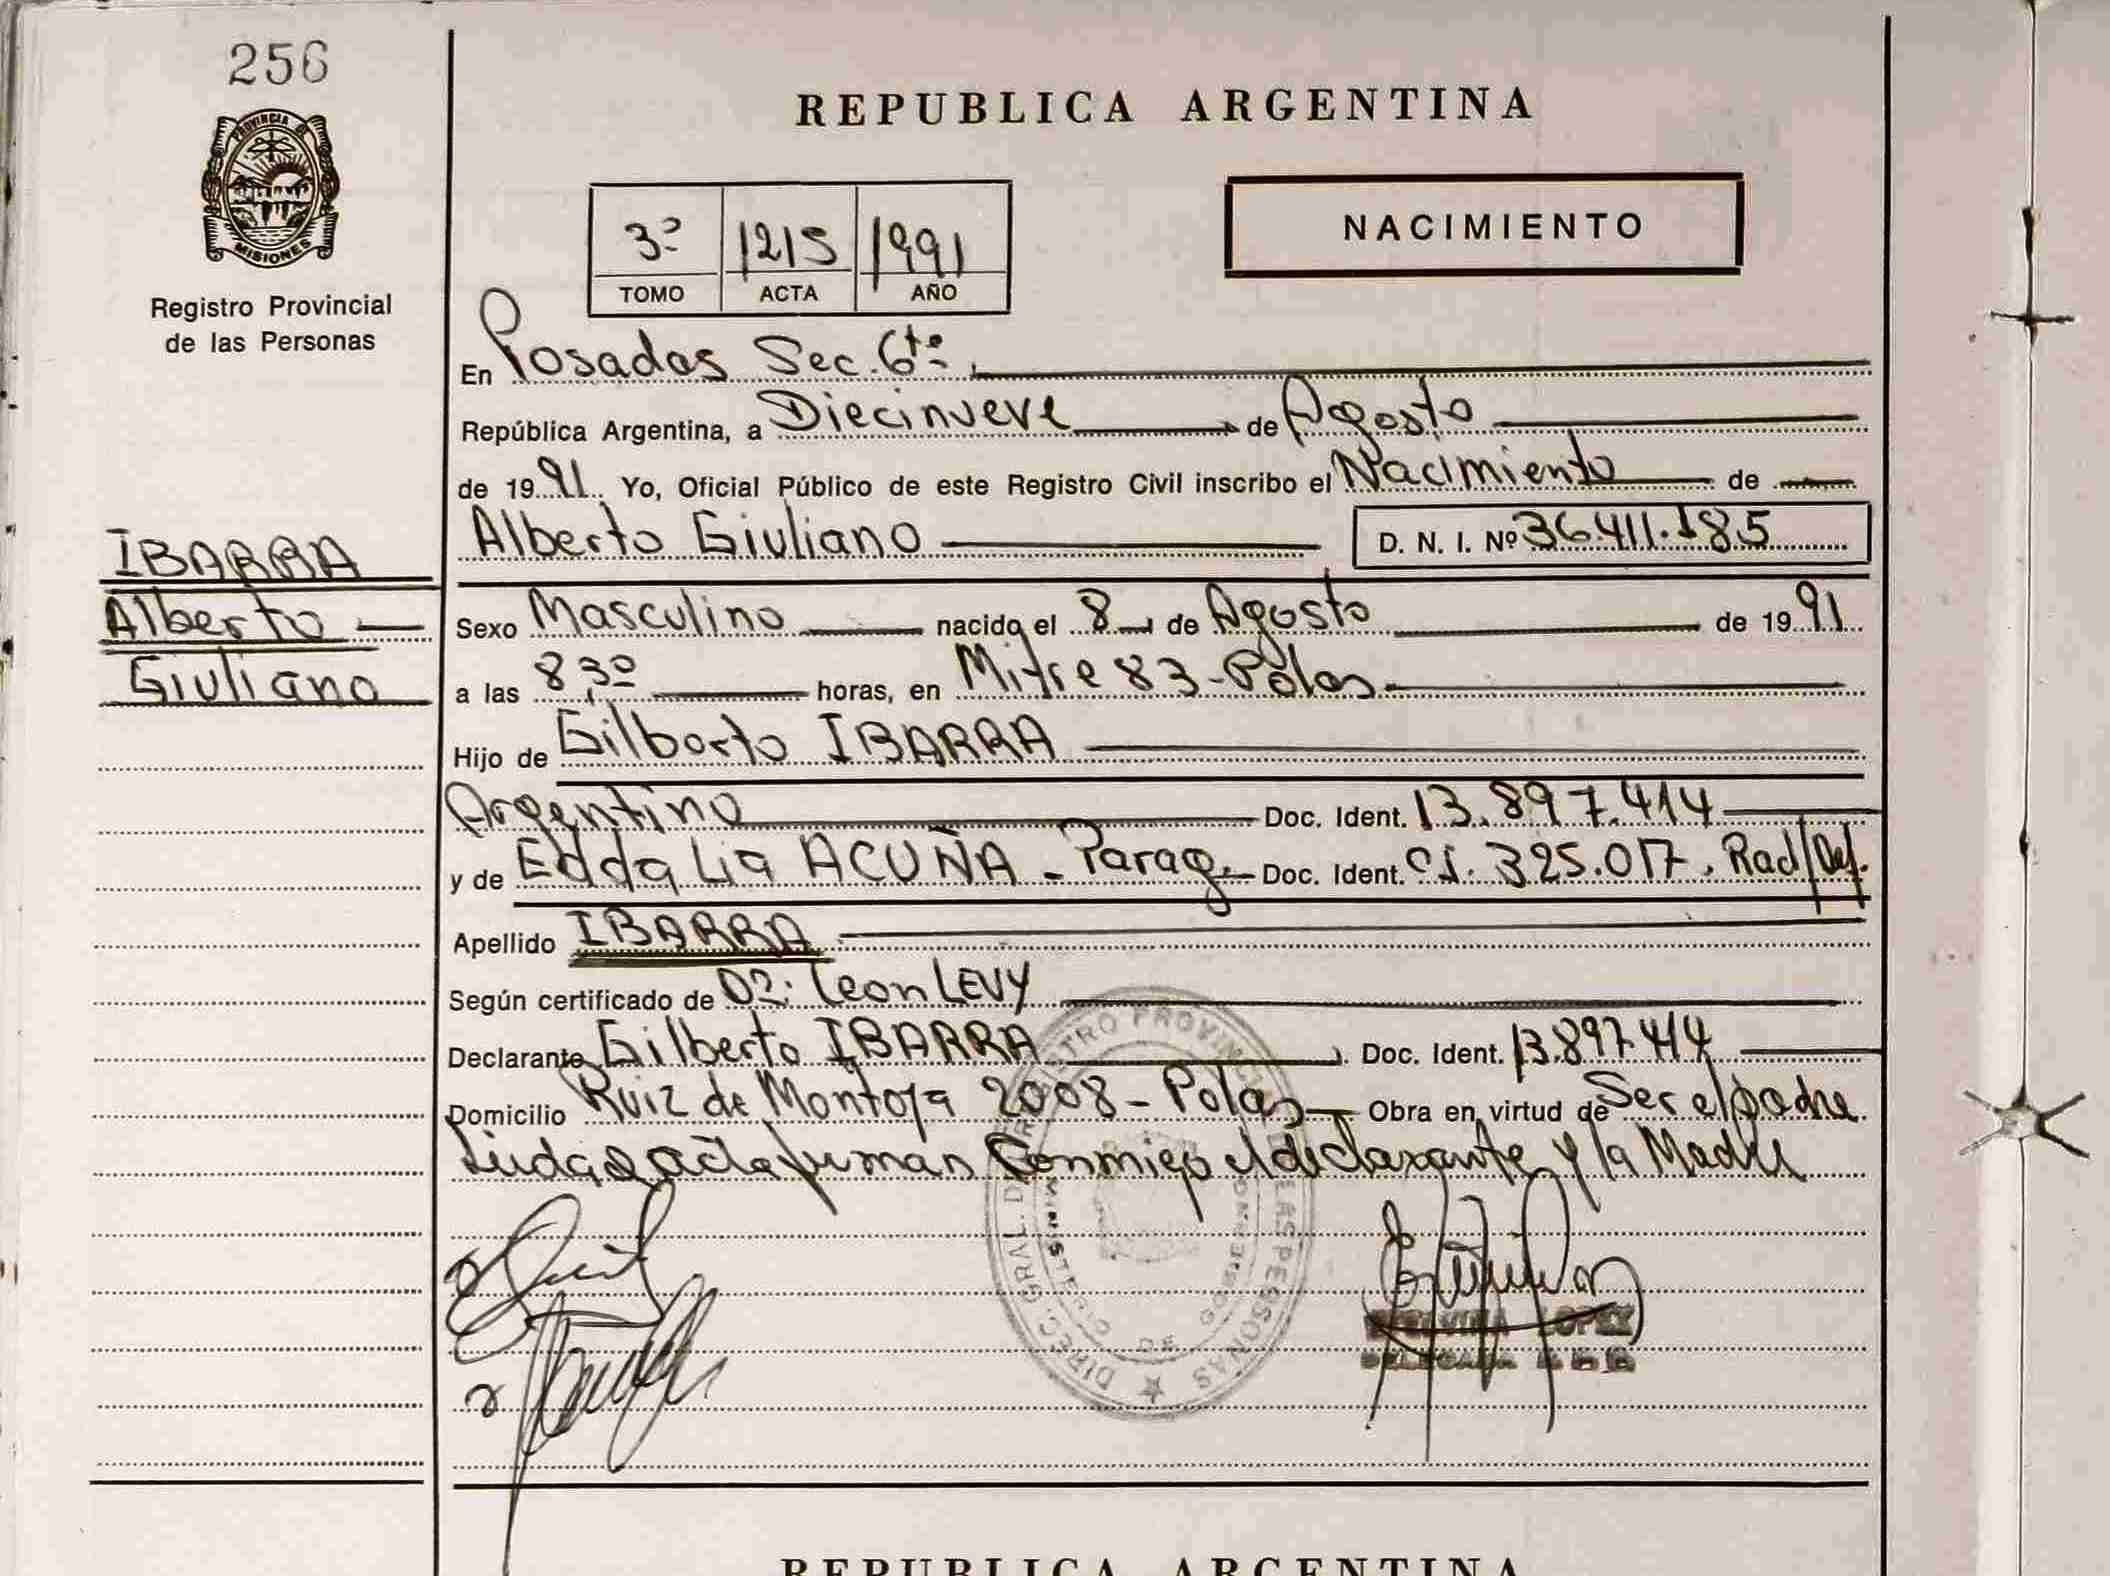 256
PROVINCIA DE
MISIONES
Registro Provincial
de las Personas
IBARRA
Alberto
Giuliano
REPUBLICA ARGENTINA
3º 1215 1991
TOMO ACTA AÑO
NACIMIENTO
En Posadas Sec. 6ta
República Argentina, a Diecinueve de Agosto
de 1991 Yo, Oficial Público de este Registro Civil inscribo el Nacimiento de
Alberto Giuliano D. N. I. Nº 36.411.185
Sexo Masculino nacido el 8 de Agosto de 1991
a las 8,30 horas, en Mitre 83 - Pdas
Hijo de Gilberto IBARRA
Argentino Doc. Ident. 13.897.414
y de Edda Lia ACUÑA - Parag. Doc. Ident. CI. 325.017. Rad/Def.
Apellido IBARRA
Según certificado de Dr. Leon LEVY
Declarante Gilberto IBARRA Doc. Ident. 13.897.414
Domicilio Ruiz de Montoya 2008 - Pdas Obra en virtud de Ser el padre
Leida el acta firman Conmigo el declarante y la Madre
DIREC. GRAL. DEL REGISTRO PROVINCIAL DE LAS PERSONAS
MINISTERIO DE GOBIERNO
LOPEZ
DELEGADA
REPUBLICA ARGENTINA